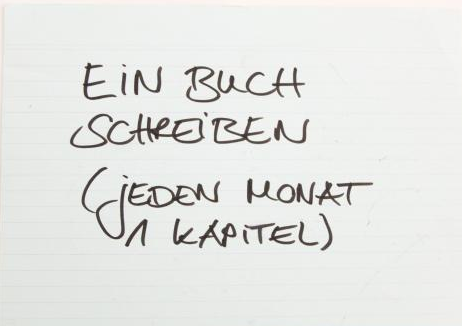 EIN BUCH
SCHREIBEN
(JEDEN MONAT
1 KAPITEL)